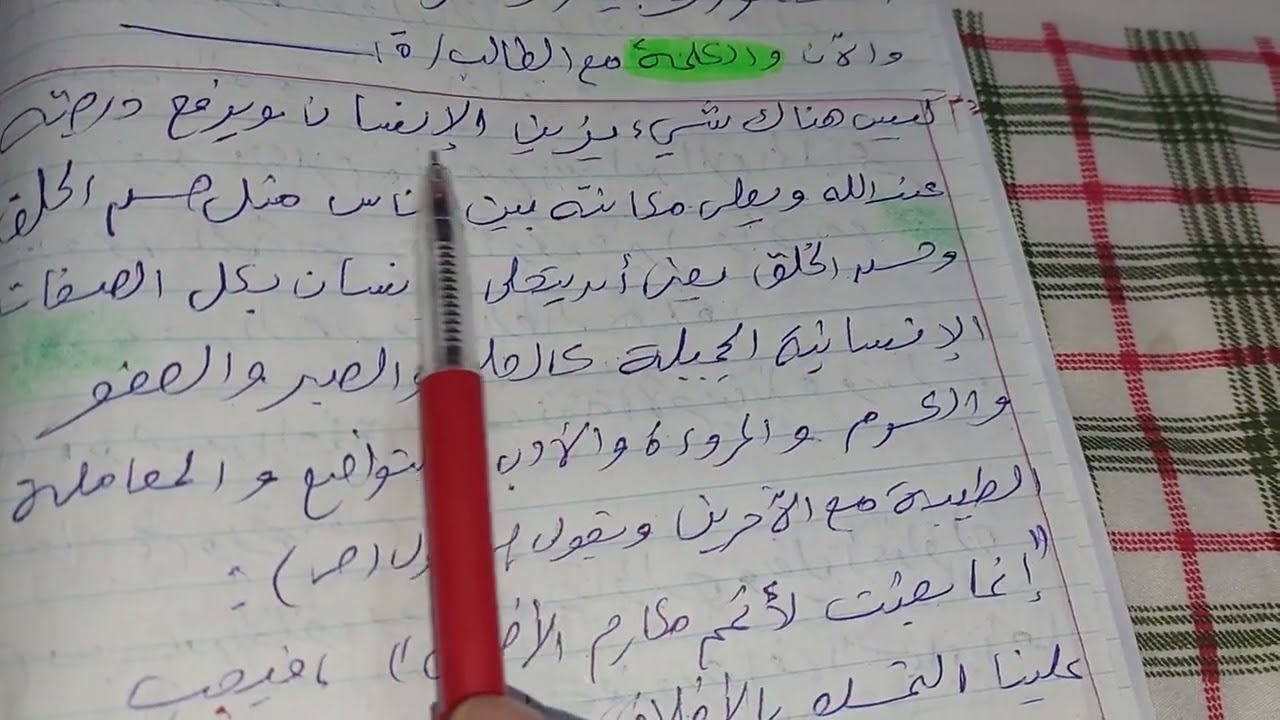 والآن والكلمة مع الطالب/ة
ليس هناك شيء يزين الإنسان ويرفع درجته
عند الله ويعلي مكانته بين ناس مثل حسن الخلق
وحسن الخلق يعني أن يتحلى نسان بكل الصفات
الإنسانية الجميلة والصبر والعفو
والكرم والمروءة والأدب تواضع والمعاملة
الطيبة مع الآخرين ويقول (ص) :
"إنما بعثت لأتمم مكارم ") ، فيجب
علينا التمسك بالأخلاق